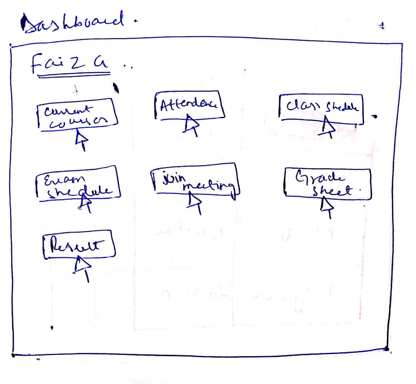 Dashboard.
Faiza ..
Current
courses
Attendence
Class shedule
Exam
shedule
Join
meeting
Grade
sheet.
Result